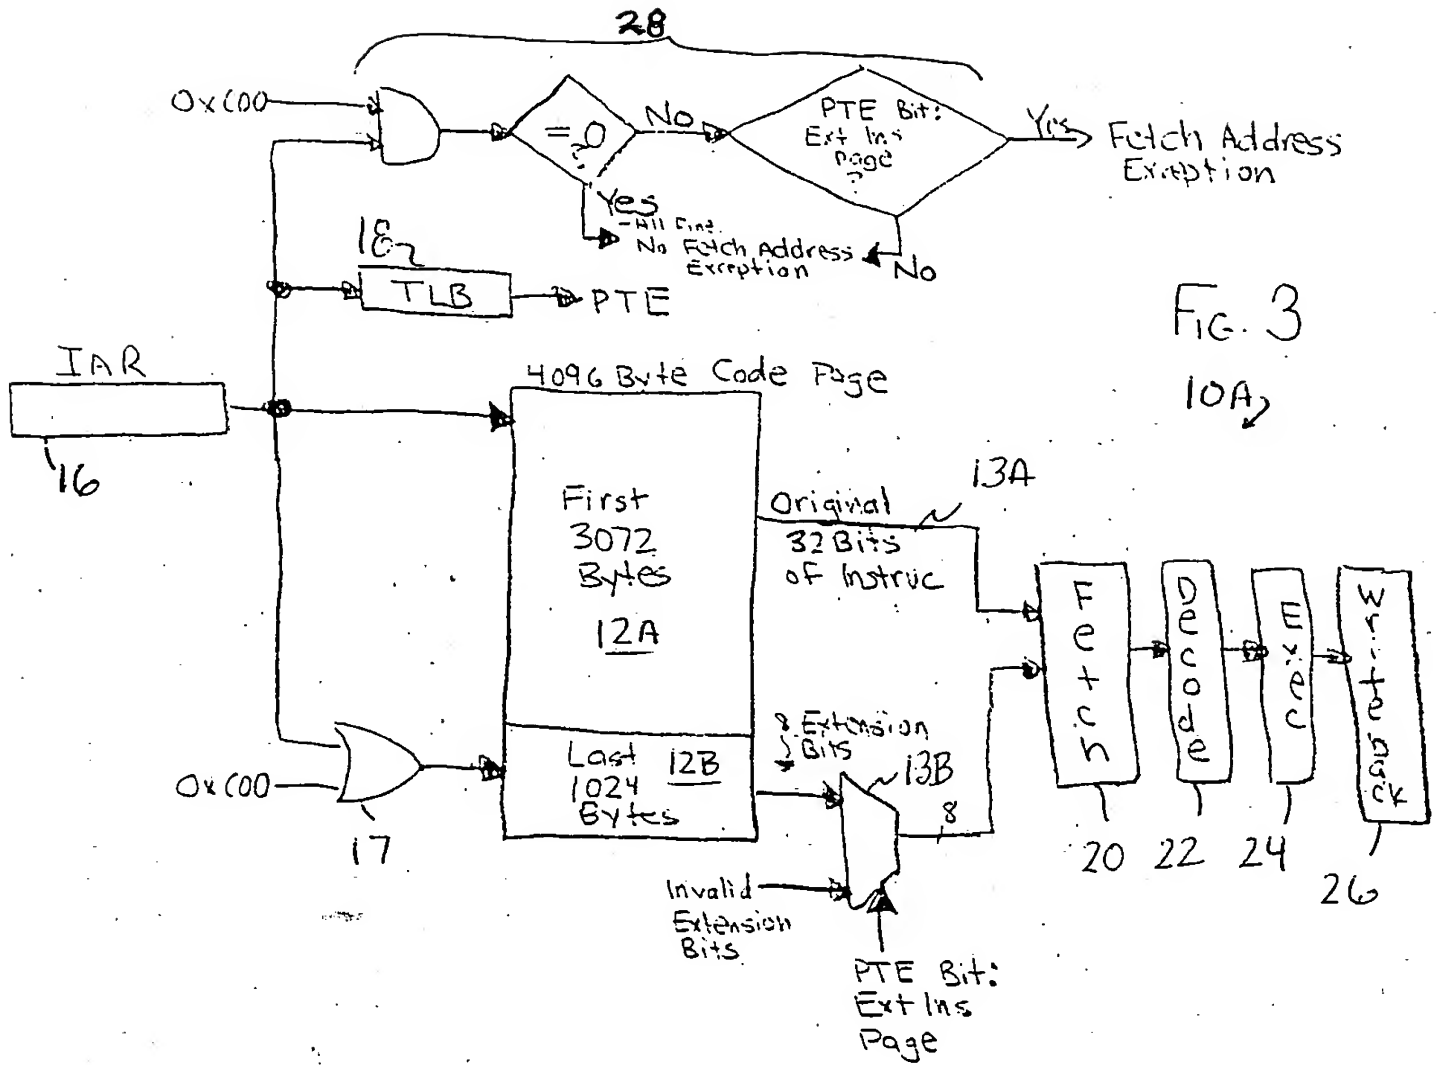 28
0xC00
= 0
?
No
PTE Bit:
Ext Ins
Page
?
Yes
Fetch Address
Exception
Yes
- All Fine.
No Fetch Address
Exception
No
18
TLB
PTE
FIG. 3
10A
IAR
16
4096 Byte Code Page
First
3072
Bytes
12A
Original
32 Bits
of Instruc
13A
Last
1024
Bytes
12B
8 Extension
Bits
13B
8
0xC00
17
Invalid
Extension
Bits
PTE Bit:
Ext Ins
Page
Fetch
Decode
Exec
Writeback
20
22
24
26